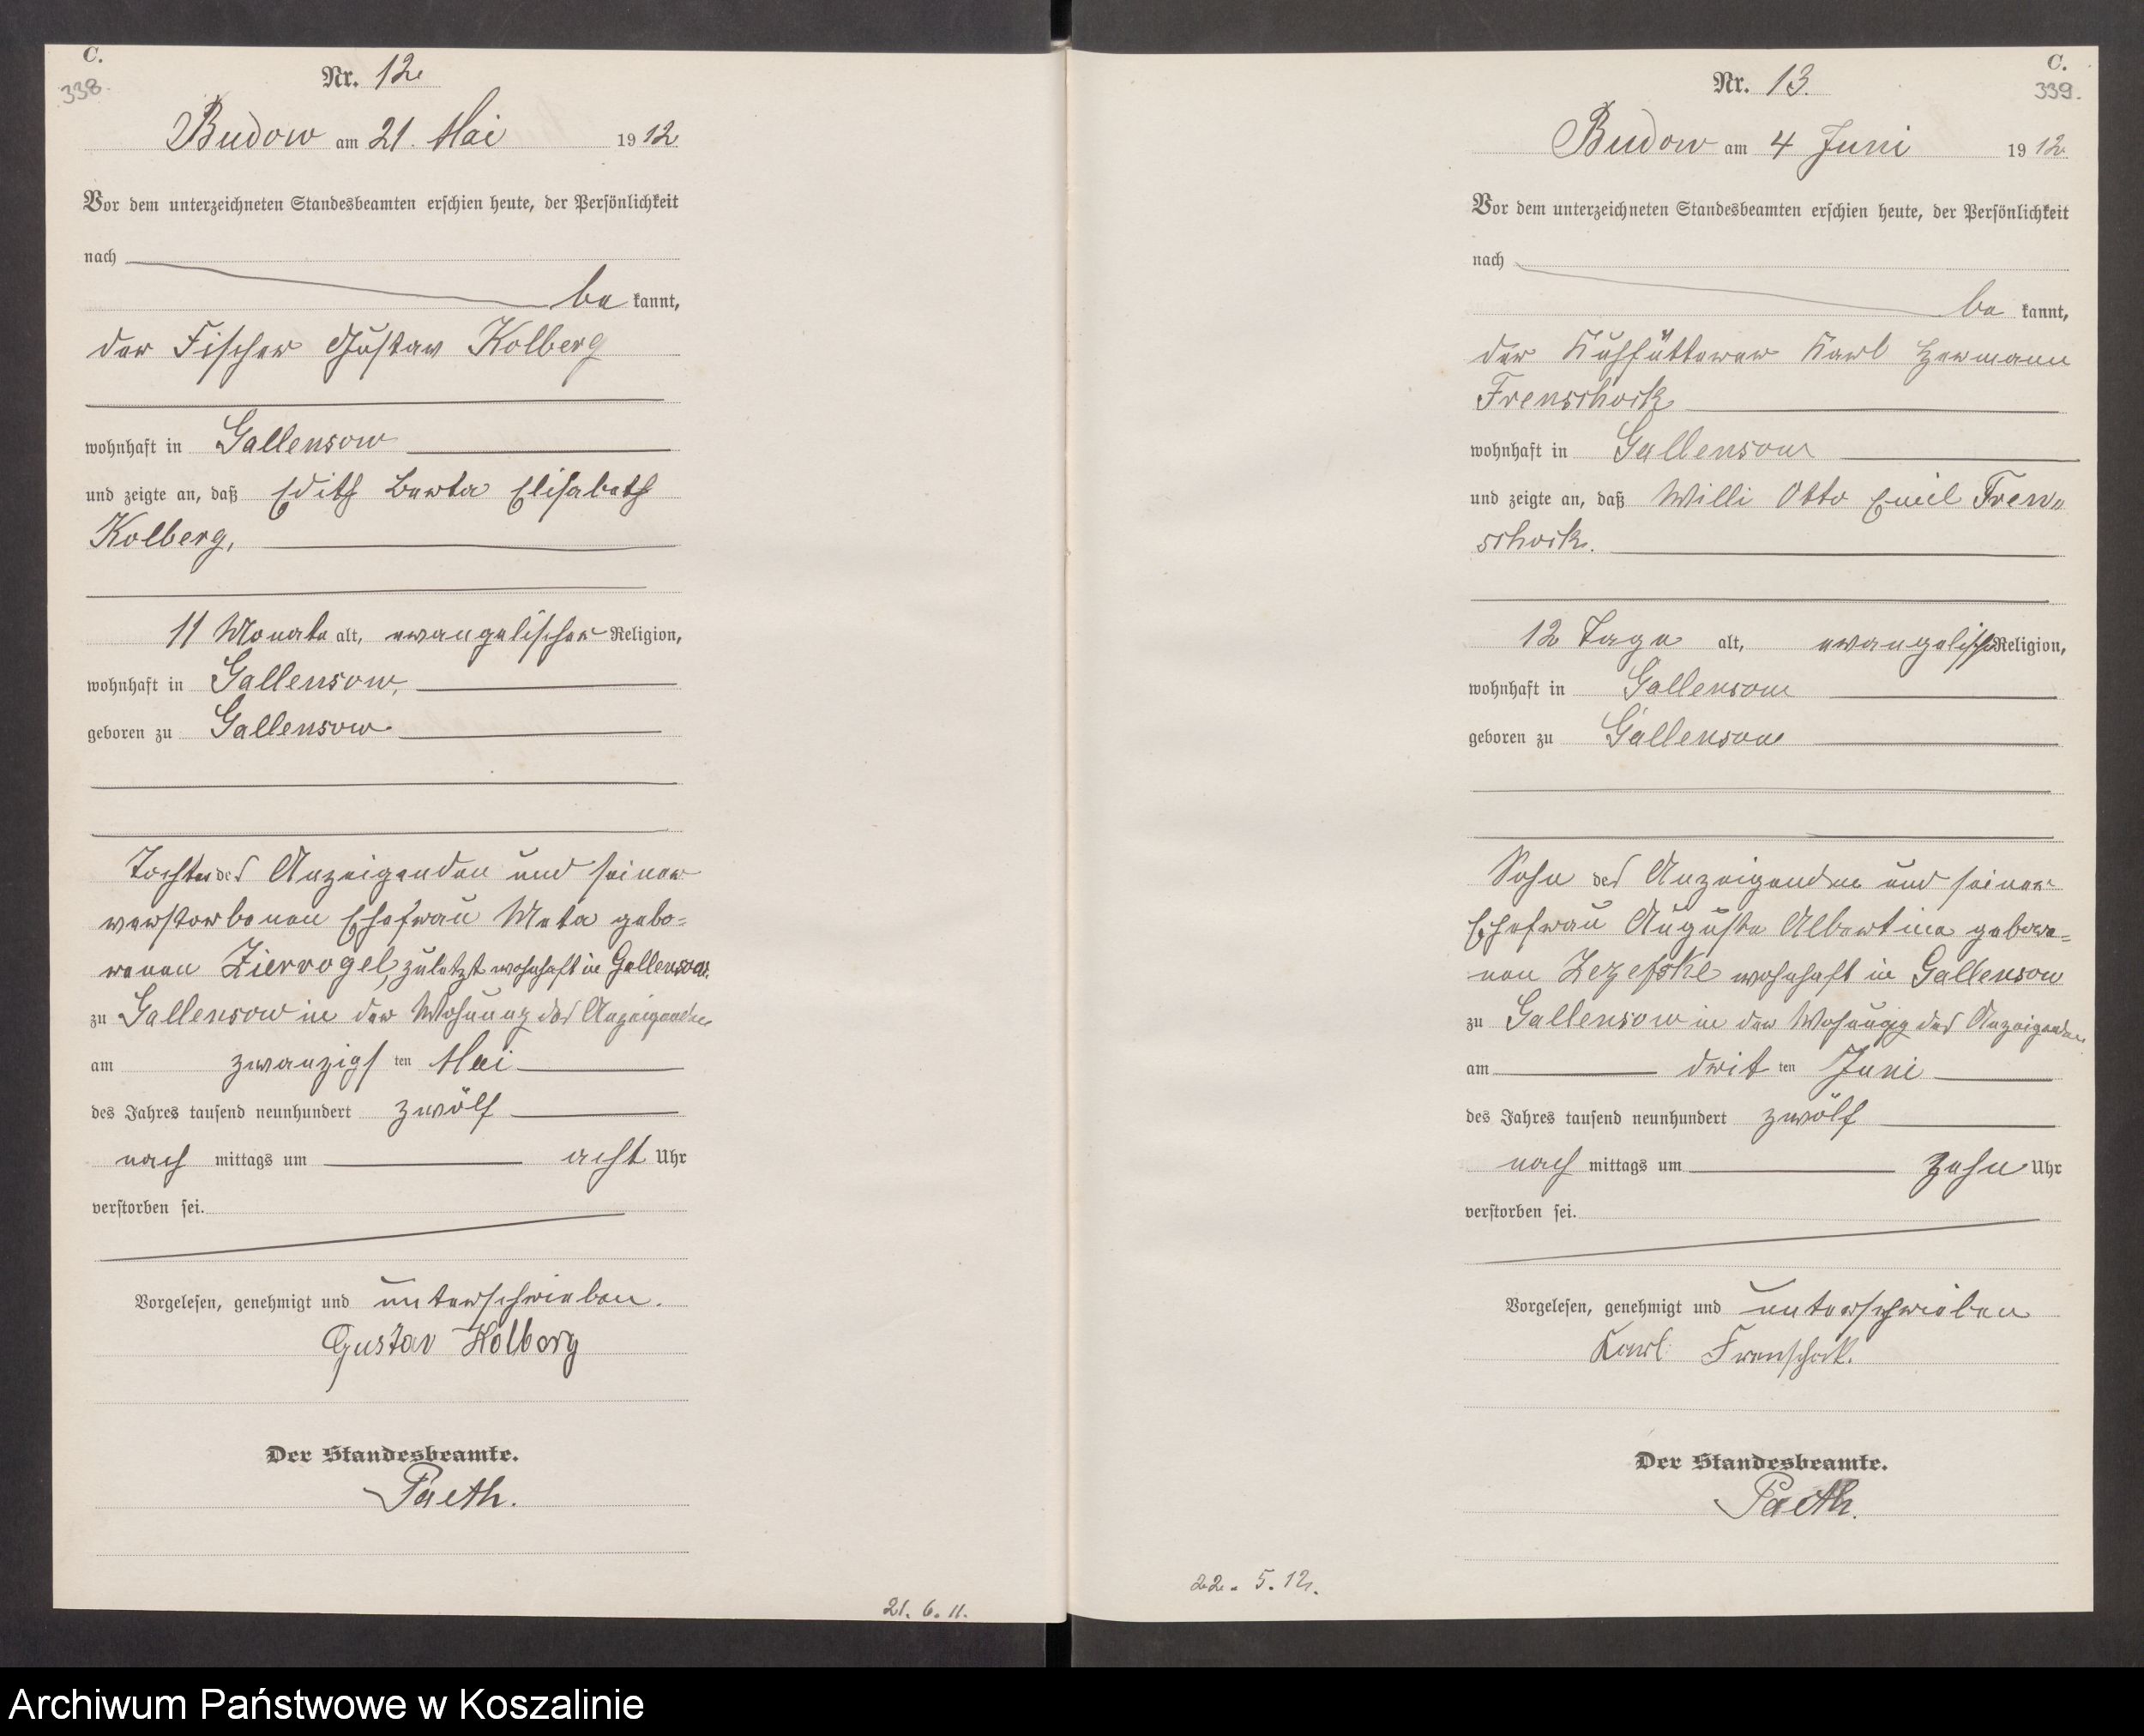 C.
338.
Nr. 12
Budow am 21. Mai 1912
Vor dem unterzeichneten Standesbeamten erschien heute, der Persönlichkeit
nach
be kannt,
der Fischer Gustav Kolberg
wohnhaft in Gallensow
und zeigte an, daß Edith Berta Elisabeth
Kolberg,
11 Monate alt, evangelischer Religion,
wohnhaft in Gallensow,
geboren zu Gallensow
Tochter des Anzeigenden und seiner
verstorbenen Ehefrau Meta gebo=
renen Ziervogel, zuletzt wohnhaft in Gallensow.
zu Gallensow in der Wohnung des Anzeigenden
am zwanzigsten Mai
des Jahres tausend neunhundert zwölf
nach mittags um acht Uhr
verstorben sei.
Vorgelesen, genehmigt und unterschrieben.
Gustav Kolberg
Der Standesbeamte.
Paeth.
21. 6. 11.
C.
339.
Nr. 13.
Budow am 4 Juni 1912
Vor dem unterzeichneten Standesbeamten erschien heute, der Persönlichkeit
nach
be kannt,
der Kuhfütterer Karl Hermann
Frenschock
wohnhaft in Gallensow
und zeigte an, daß Willi Otto Emil Fren„
schock.
12 Tage alt, evangelisch Religion,
wohnhaft in Gallensow
geboren zu Gallensow
Sohn des Anzeigenden und seiner
Ehefrau Auguste Albertine gebore=
nen wohnhaft in Gallensow
zu Gallensow in der Wohnung des Anzeigenden
am dritten Juni
des Jahres tausend neunhundert zwölf
nach mittags um zehn Uhr
verstorben sei.
Vorgelesen, genehmigt und unterschrieben
Karl Frenschock.
Der Standesbeamte.
Paeth.
22. 5. 12.
Archiwum Państwowe w Koszalinie